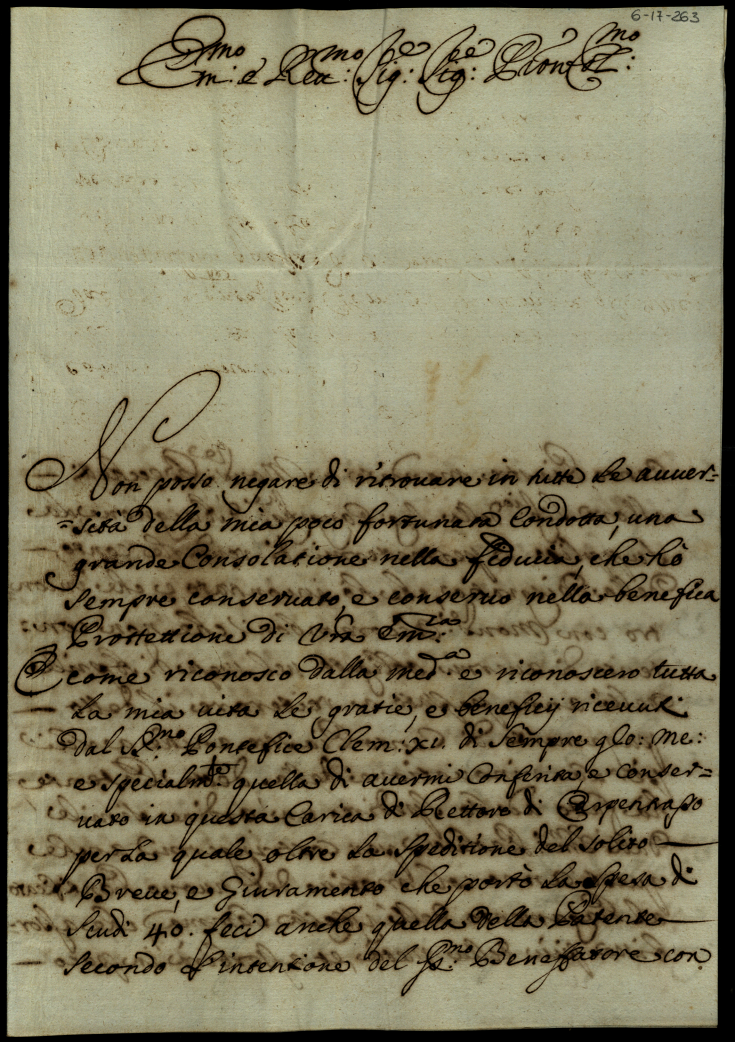 6-17-263
Em:mo e Reu:mo Sig:re Sig:re P'ron Col:mo
Non posso negare di ritrouare in tutte le auuer=
=sità della mia poco fortunata Condotta, una
grande Consolatione nella fiducia, che hò
sempre conseruato, e conseruo nella benefica
Protettione di Vra Em:za
E come riconosco dalla med:a e riconoscerò tutta
la mia uita le gratie, e beneficij riceuuti
dal S:mo Pontefice Clem: XI. di sempre glo: me:
e specialmte quella di auermi Conferita, e conser=
uato in questa Carica di Rettore di Carpentrasso
per la quale oltre la speditione del solito
Breue, e Giuramento che portò la spesa di
scudi 40. feci anche quella della Patente
secondo l'intentione del S:mo Benefattore con